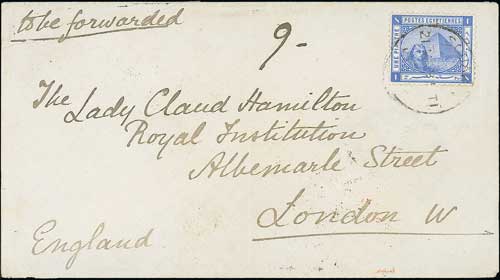 to be forwarded
9-
POSTES EGYPTIENNES
1 1
The
Lady Claud Hamilton
Royal Institution
Albemarle Street
London W
England